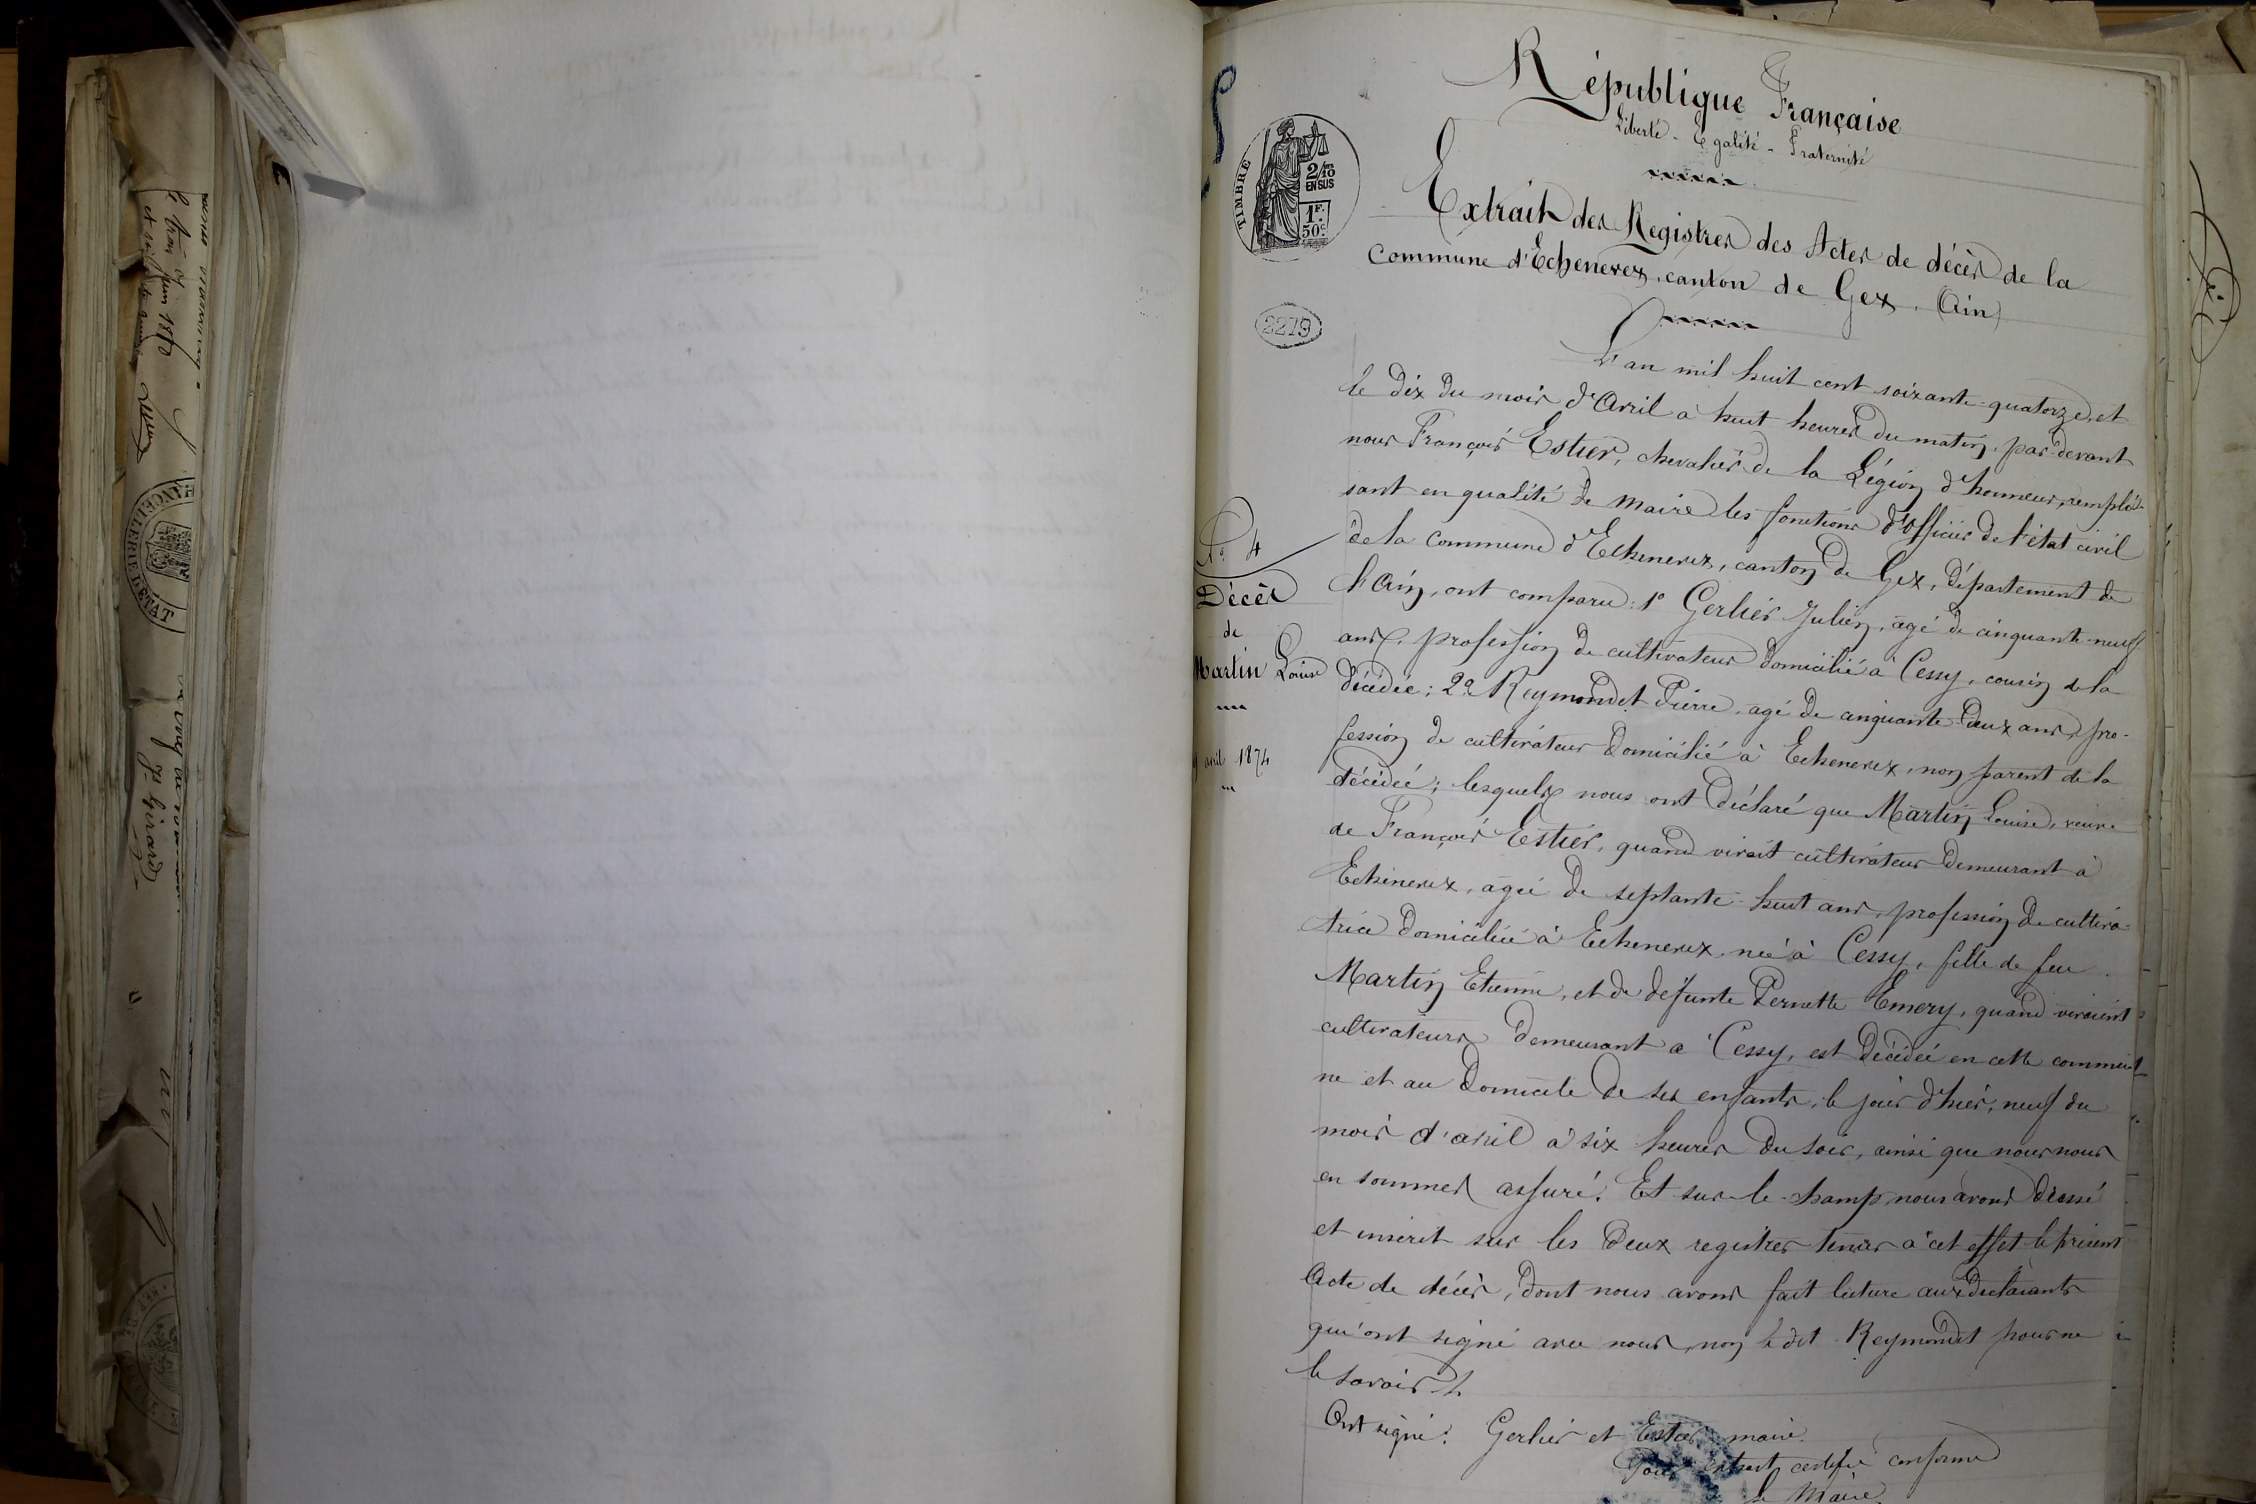 République Française
Liberté - Egalité - Fraternité
TIMBRE
2/10
EN SUS
1F.
50c.
Extrait des Registres des Actes de décès de la
Commune d'Echenevex, canton de Gex. (Ain)
2279
L'an mil huit cent soixante-quatorze, et
le dix du mois d'Avril à huit heures du matin, par-devant
nous François Estier, chevalier de la Légion d'honneur, remplis-
sant en qualité de maire les fonctions d'officier de l'état civil
de la commune d'Echenevex, canton de Gex, département de
l'Ain, ont comparu: 1o Gerlier Julien, agé de cinquante-neuf
ans, profession de cultivateur domicilié à Cessy, cousin de la
décédée; 2o Reymondet Pierre, agé de cinquante-deux ans, pro-
fession de cultivateur domicilié à Echenevex, non parent de la
décédée; lesquels nous ont déclaré que Martin Louise, veuve
de François Estier, quand vivait cultivateur demeurant à
Echenevex, agée de septante-huit ans, profession de cultiva-
trice domiciliée à Echenevex, née à Cessy, fille de feu
Martin Etienne, et de défunte Pernette Emery, quand vivaient
cultivateurs demeurant à Cessy, est décédée en cette commu-
ne et au domicile de ses enfants, le jour d'hier, neuf du
mois d'avril à six heures du soir, ainsi que nous nous
en sommes assuré. Et sur-le-champ nous avons dressé
et inscrit sur les deux registres tenus à cet effet le présent
Acte de décès, dont nous avons fait lecture aux déclarants
qui ont signé avec nous, non le dit Reymondet pour ne
le savoir.
Ont signé: Gerlier et Estier maire.
Pour extrait certifié conforme
Le Maire
No 4
Décès
de
Martin Louise
9 avril 1874
juin 1880
CHANCELLERIE D'ETAT
Girard